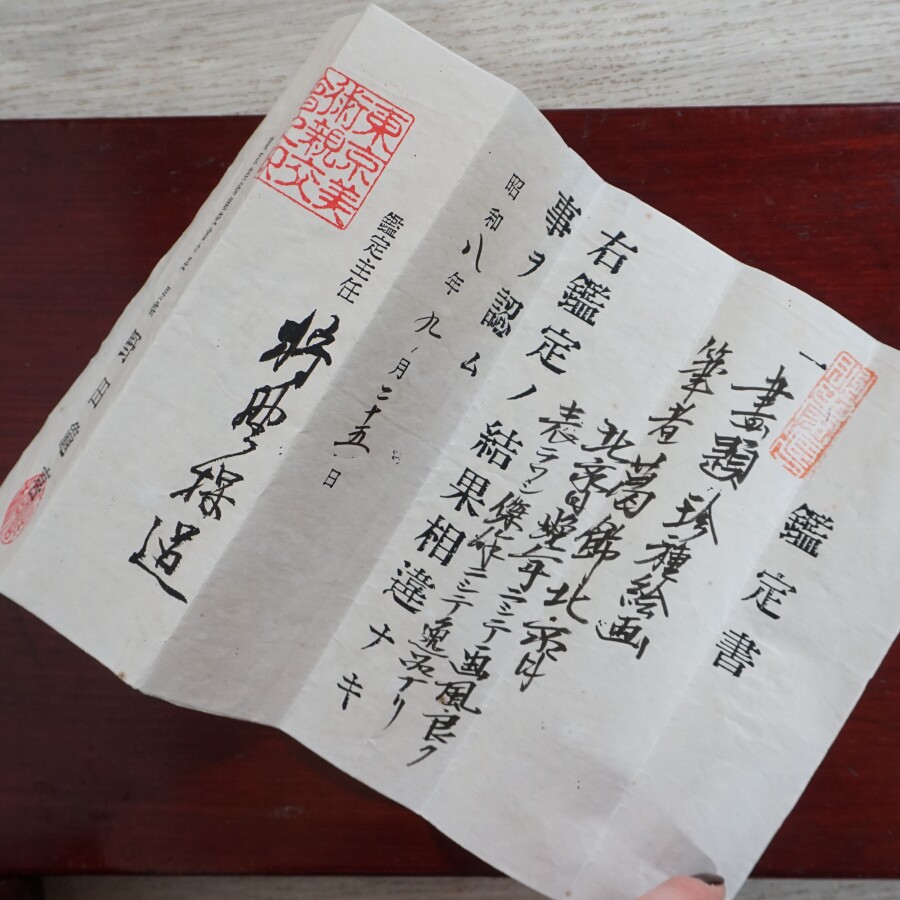 鑑定書
一 畫題 珍種絵画
筆者 葛飾北斎
北斎晩年ニシテ画風良ク
表ラワシ傑作ニシテ逸品ナリ
右鑑定ノ結果相違ナキ
事ヲ認ム
昭和八年九月二十五日
鑑定主任
東京美術親交会之印